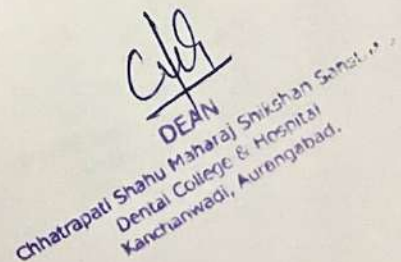 DEAN
Chhatrapati Shahu Maharaj Shikshan
Dental College & Hospital
Kanchanwadi, Aurangabad.